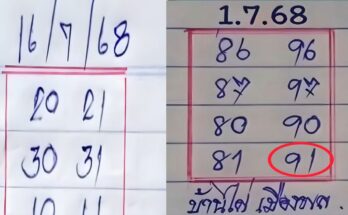 16/7/68
20 21
30 31
10 11
1.7.68
86 96
87 97
80 90
81 91
บ้านไผ่ เมืองพล.